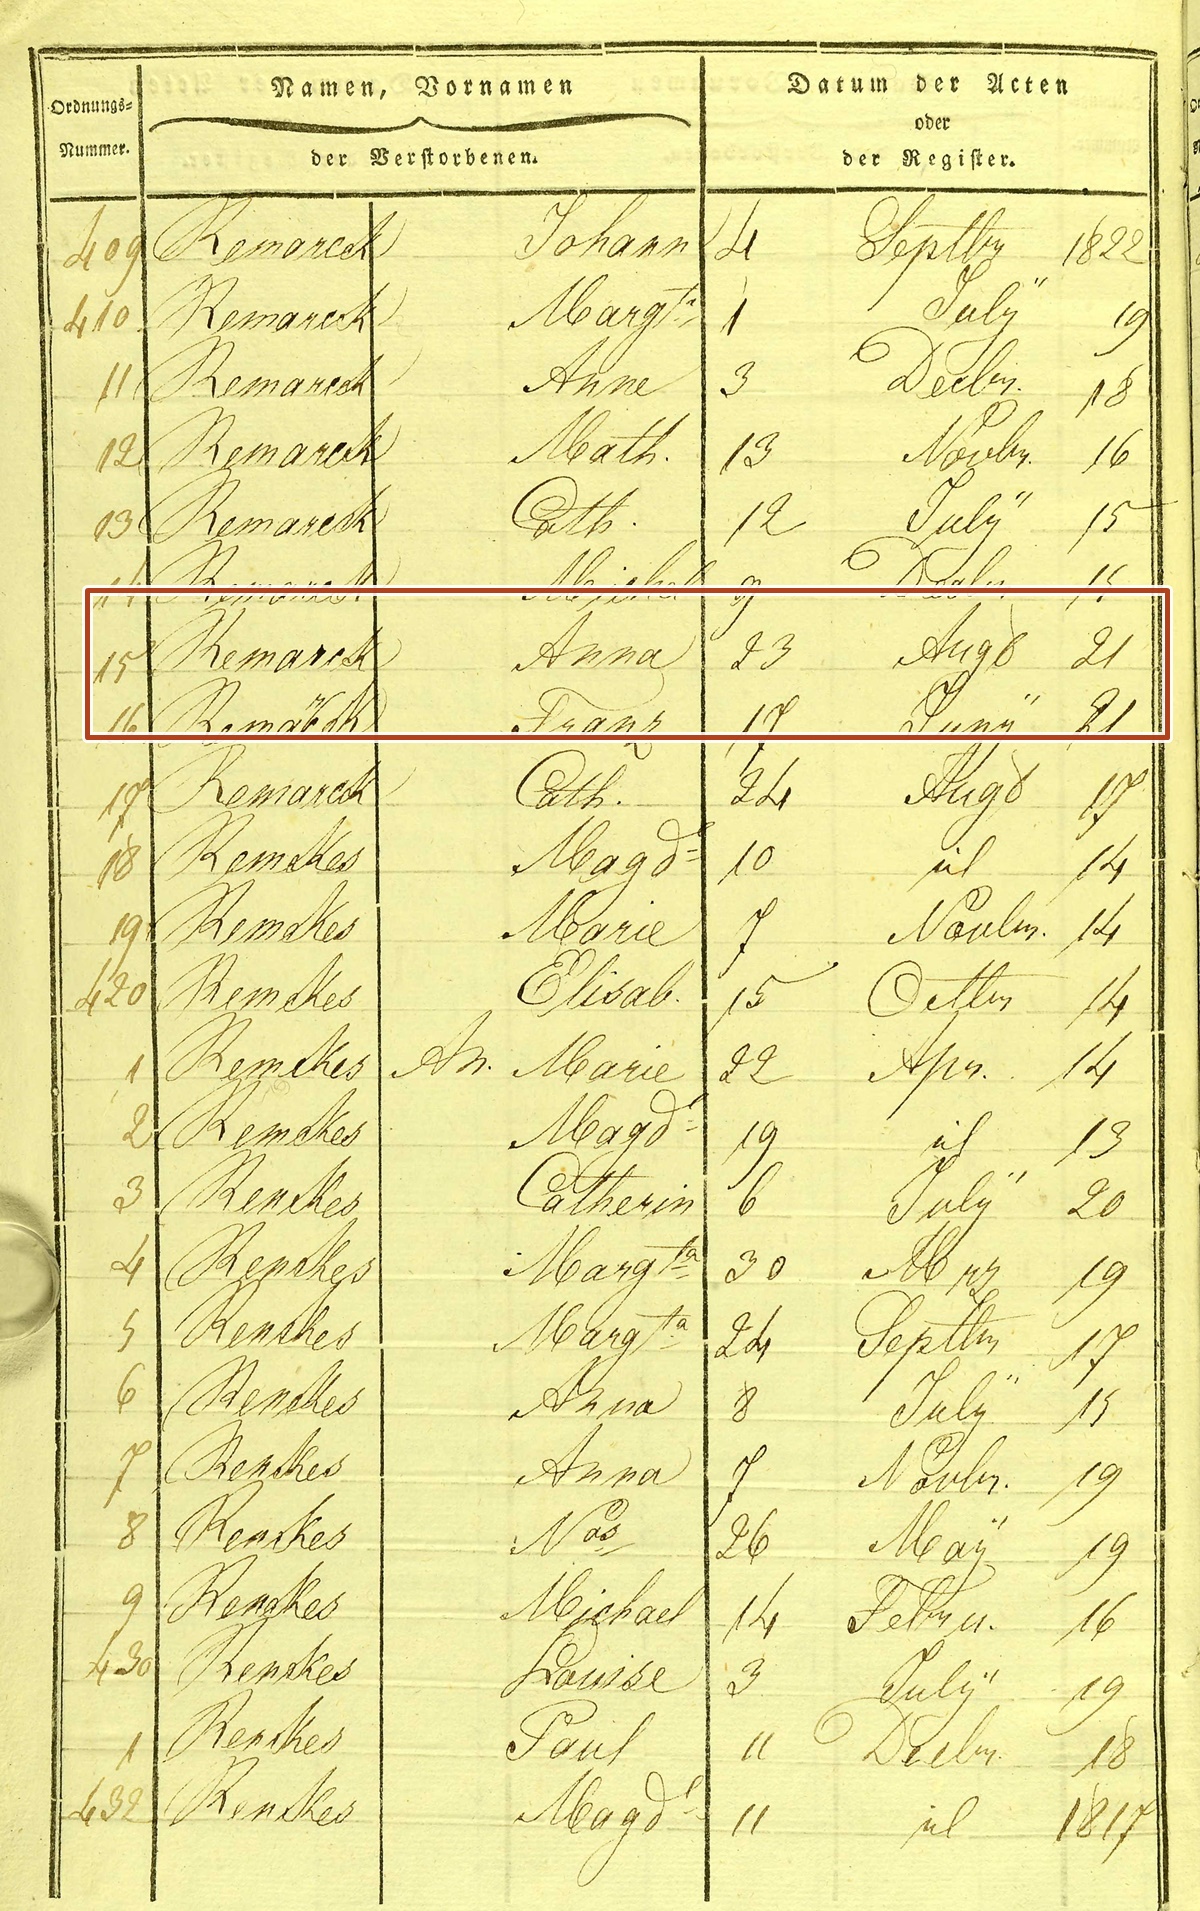 Ordnungs=
Nummer.
Namen, Vornamen
der Verstorbenen.
Datum der Acten
oder
der Register.
409 Remarck Johann 4 Septbr 1822
410 Remarck Margta 1 July 19
11 Remarck Anne 3 Decbr. 18
12 Remarck Math. 13 Novbr. 16
13 Remarck Cath. 12 July 15
14 Remarck Michel 9 Decbr
15 Remarck Anna 23 Aug 21
16 Franz 17 Juny 21
17 Remarck Cath. 24 Aug 17
18 Remckes Magd 10 id 14
19 Remckes Marie 7 Novbr. 14
420 Remckes Elisab. 15 Octbr 14
1 Remckes An. Marie 22 Apr. 14
2 Remckes Magd 19 id 13
3 Renckes Catherin 6 July 20
4 Renckes Margta 30 Mrz 19
5 Renckes Margta 24 Septbr 17
6 Renckes Anna 8 July 15
7 Renckes Anna 7 Novbr. 19
8 Renckes 26 May 19
9 Renckes Michael 14 Febru. 16
430 Renckes Louise 3 July 19
1 Renckes Paul 11 Decbr. 18
432 Renckes Magd 11 id 1817